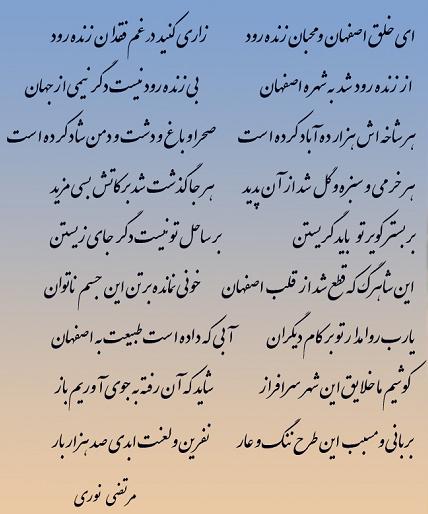 ای خلق اصفهان و محبان زنده رود زاری کنید در غم فقدان زنده رود
از زنده رود شد به شهره اصفهان بی زنده رود نیست دگر نیمی از جهان
هر شاخه اش هزار ده آباد کرده است صحرا و باغ و دشت و دمن شاد کرده است
هر خرمی و سبزه و گل شد از آن پدید هر جا گذشت شد برکاتش بسی مزید
بر بستر کویر تو باید گریستن بر ساحل تو نیست دگر جای زیستن
این شاهرگ که قطع شد از قلب اصفهان خونی نمانده بر تن این جسم ناتوان
یارب روا مدار تو بر کام دیگران آبی که داده است طبیعت به اصفهان
کوشیم ما خلایق این شهر سرافراز شاید که آن رفته به جوی آوریم باز
بر بانی و مسبب این طرح ننگ و عار نفرین و لعنت ابدی صد هزار بار
مرتضی نوری